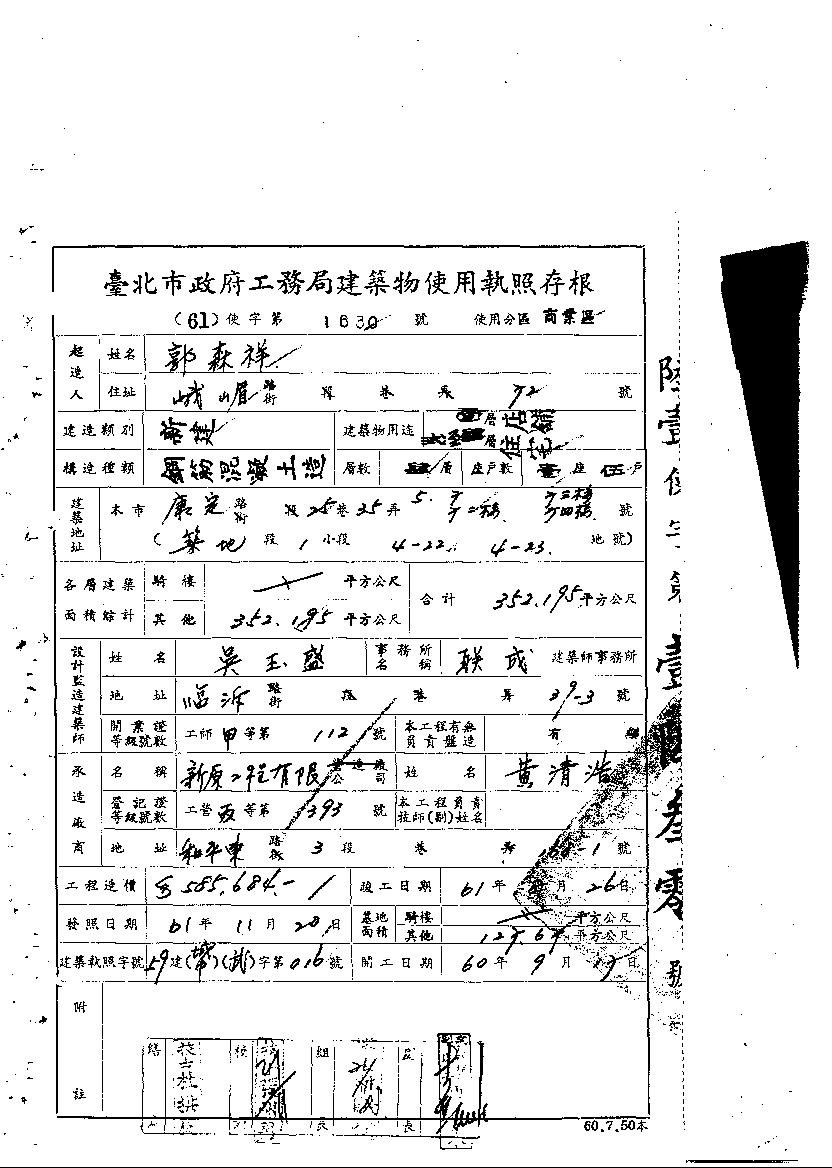 臺北市政府工務局建築物使用執照存根
(61)使字第 1630 號 使用分區 商業區
起造人 姓名 郭森祥
住址 峨嵋 路街 段 巷 弄 72 號
建造類別 新建 建築物用途 層店舖 層住宅
構造種類 鋼筋混凝土造 層數 層 座戶數 座 伍戶
建築地址 本市 康定 路街 段 25巷 35弄 5. 號
(築地 段 1 小段 4-22. 4-23. 地號)
各層建築面積綜計 騎樓 平方公尺
其他 352.195 平方公尺 合計 352.195 平方公尺
設計監造建築師 姓名 吳玉盛 事務所名稱 联成 建築師事務所
地址 臨沂 路街 段 巷 弄 39-3 號
開業證等級號數 工師甲等第 112 號 本工程有無負責監造 有
承造廠商 名稱 新原工程有限公司 姓名 黃清浩
登記證等級號數 工營 等第 393 號 本工程負責技師(副)姓名
地址 和平東 路街 3 段 巷 弄 號
工程造價 585,684.- 竣工日期 61年 月 26日
發照日期 61年 11月 20日 基地面積 騎樓 平方公尺
其他 平方公尺
建築執照字號 59建( )(武)字第 016號 開工日期 60年 9月 日
附註
60.7.50本
陸壹使字第壹陸叁零號